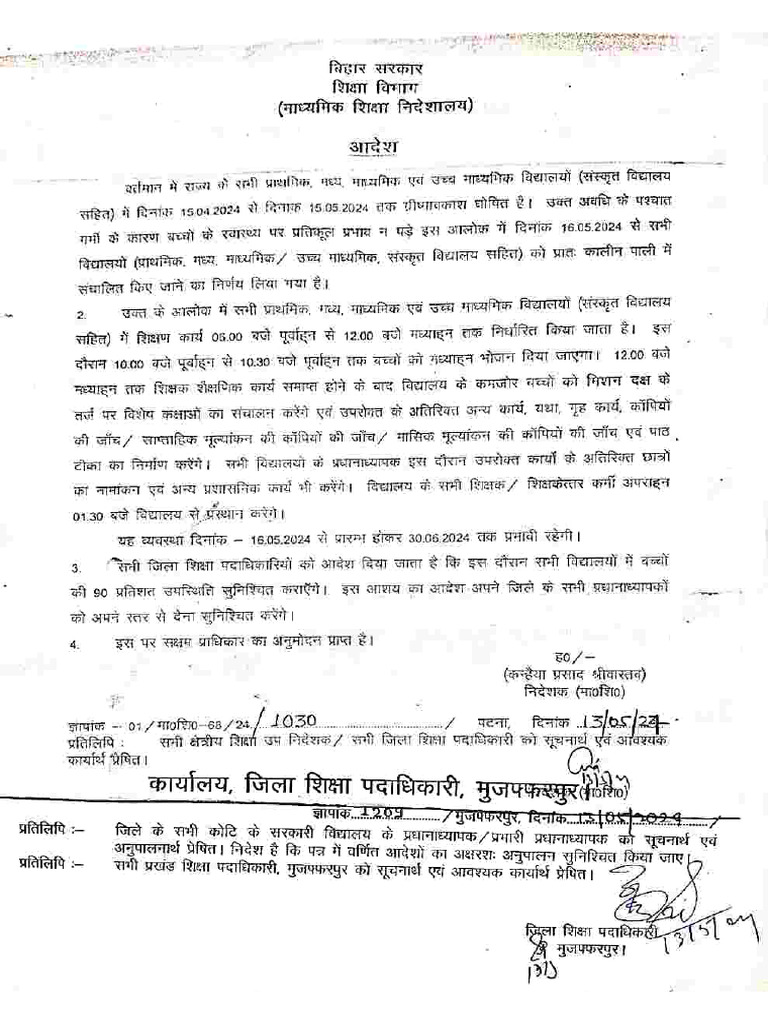 बिहार सरकार
शिक्षा विभाग
(माध्यमिक शिक्षा निदेशालय)
आदेश
वर्तमान में राज्य के सभी प्राथमिक, मध्य, माध्यमिक एवं उच्च माध्यमिक विद्यालयों (संस्कृत विद्यालय
सहित) में दिनांक 15.04.2024 से दिनांक 15.05.2024 तक ग्रीष्मावकाश घोषित है। उक्त अवधि के पश्चात
गर्मी के कारण बच्चों के स्वास्थ्य पर प्रतिकूल प्रभाव न पड़े इस आलोक में दिनांक 16.05.2024 से सभी
विद्यालयों (प्राथमिक, मध्य, माध्यमिक/ उच्च माध्यमिक, संस्कृत विद्यालय सहित) को प्रातः कालीन पाली में
संचालित किए जाने का निर्णय लिया गया है।
2. उक्त के आलोक में सभी प्राथमिक, मध्य, माध्यमिक एवं उच्च माध्यमिक विद्यालयों (संस्कृत विद्यालय
सहित) में शिक्षण कार्य 06.00 बजे पूर्वाह्न से 12.00 बजे मध्याह्न तक निर्धारित किया जाता है। इस
दौरान 10.00 बजे पूर्वाह्न से 10.30 बजे पूर्वाह्न तक बच्चों को मध्याह्न भोजन दिया जाएगा। 12.00 बजे
मध्याह्न तक शिक्षक शैक्षणिक कार्य समाप्त होने के बाद विद्यालय के कमजोर बच्चों को मिशन दक्ष के
तर्ज पर विशेष कक्षाओं का संचालन करेंगे एवं उपरोक्त के अतिरिक्त अन्य कार्य, यथा, गृह कार्य, कॉपियों
की जाँच/ साप्ताहिक मूल्यांकन की कॉपियों की जाँच/ मासिक मूल्यांकन की कॉपियों की जाँच एवं पाठ
टीका का निर्माण करेंगे। सभी विद्यालयों के प्रधानाध्यापक इस दौरान उपरोक्त कार्यों के अतिरिक्त छात्रों
का नामांकन एवं अन्य प्रशासनिक कार्य भी करेंगे। विद्यालय के सभी शिक्षक/ शिक्षकेत्तर कर्मी अपराह्न
01.30 बजे विद्यालय से प्रस्थान करेंगे।
यह व्यवस्था दिनांक – 16.05.2024 से प्रारम्भ होकर 30.06.2024 तक प्रभावी रहेगी।
3. सभी जिला शिक्षा पदाधिकारियों को आदेश दिया जाता है कि इस दौरान सभी विद्यालयों में बच्चों
की 90 प्रतिशत उपस्थिति सुनिश्चित कराएँगे। इस आशय का आदेश अपने जिले के सभी प्रधानाध्यापकों
को अपने स्तर से देना सुनिश्चित करेंगे।
4. इस पर सक्षम प्राधिकार का अनुमोदन प्राप्त है।
ह०/–
(कन्हैया प्रसाद श्रीवास्तव)
निदेशक (मा०शि०)
ज्ञापांक – 01/मा०शि०-68/24/1030 / पटना, दिनांक 13/05/24
प्रतिलिपि : सभी क्षेत्रीय शिक्षा उप निदेशक/ सभी जिला शिक्षा पदाधिकारी को सूचनार्थ एवं आवश्यक
कार्यार्थ प्रेषित।
(मा०शि०)
कार्यालय, जिला शिक्षा पदाधिकारी, मुजफ्फरपुर।
ज्ञापांक 1209 /मुजफ्फरपुर, दिनांक 13/05/2024 /
प्रतिलिपि :– जिले के सभी कोटि के सरकारी विद्यालय के प्रधानाध्यापक/प्रभारी प्रधानाध्यापक को सूचनार्थ एवं
अनुपालनार्थ प्रेषित। निदेश है कि पत्र में वर्णित आदेशों का अक्षरशः अनुपालन सुनिश्चित किया जाए।
प्रतिलिपि :– सभी प्रखंड शिक्षा पदाधिकारी, मुजफ्फरपुर को सूचनार्थ एवं आवश्यक कार्यार्थ प्रेषित।
जिला शिक्षा पदाधिकारी
13/5/24
मुजफ्फरपुर।